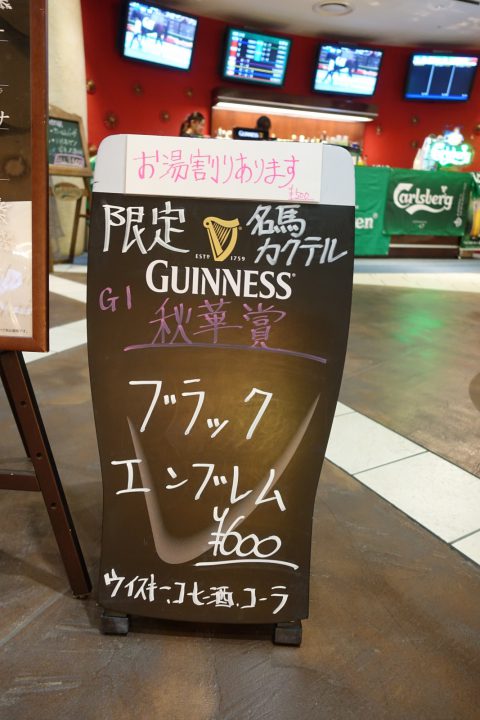 お湯割りあります
¥500
限定
名馬
カクテル
ESTD 1759
GUINNESS
G1 秋華賞
ブラック
エンブレム
¥600
ウイスキー.コ七酒.コーラ
Carlsberg
Carlsberg